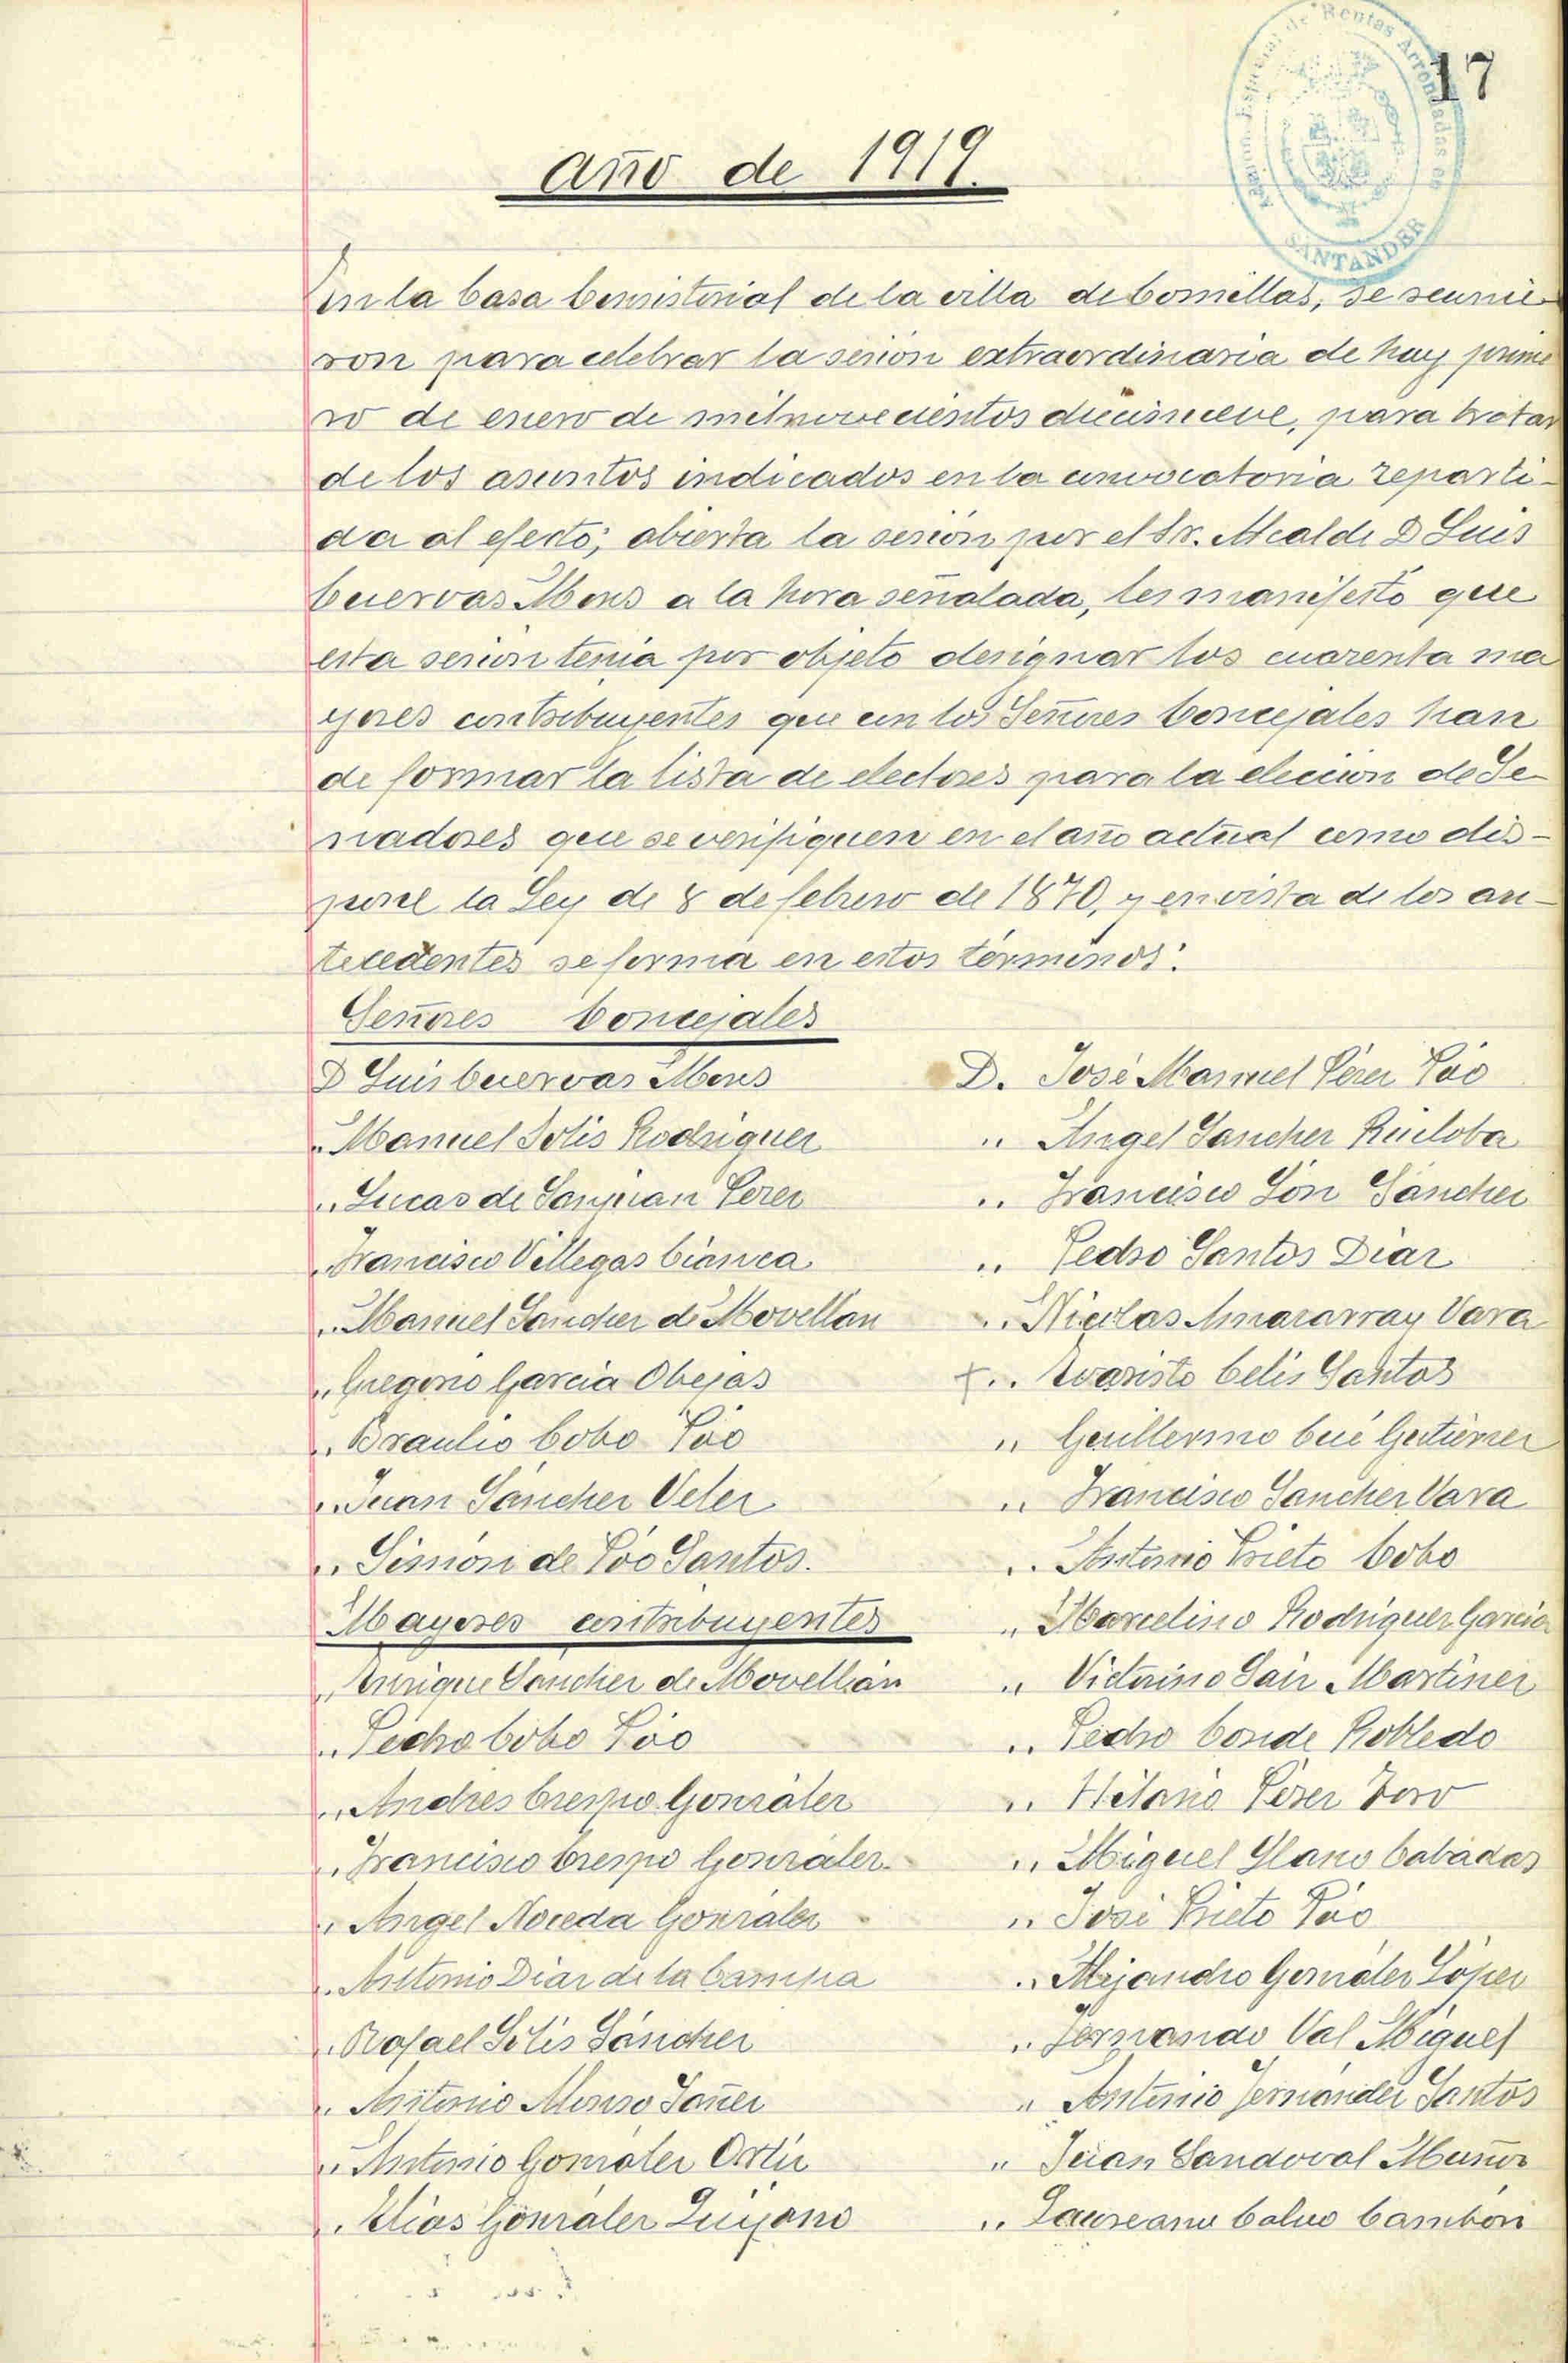 17
Año de 1919.
En la Casa Consistorial de la villa de Comillas, se reunie-
ron para celebrar la sesión extraordinaria de hoy prime
ro de enero de mil novecientos diecinueve, para tratar
de los asuntos indicados en la convocatoria reparti-
da al efecto; abierta la sesión por el Sr. Alcalde D Luis
Cuervas Mons a la hora señalada, les manifestó que
esta sesión tenia por objeto designar los cuarenta ma
yores contribuyentes que con los Señores Concejales han
de formar la lista de electores para la elección de Se-
nadores que se verifiquen en el año actual como dis-
pone la Ley de 8 de febrero de 1870, y en vista de los an-
tecedentes se forma en estos términos:
Señores Concejales
D Luis Cuervas Mons
" Manuel Solis Rodriguez
" Lucas de Sanjuan Perez
" Francisco Villegas Cianca
" Manuel Sanchez de Movellan
" Gregorio Garcia Obejas
" Braulio Cobo Póo
" Juan Sánchez Velez
" Simón de Póo Santos.
Mayores contribuyentes
" Enrique Sanchez de Movellán
" Pedro Cobo Póo
" Andres Crespo González
" Francisco Crespo González.
" Angel Noceda González
" Antonio Diaz de la Campa
" Rafael Solis Sánchez
" Antonio Alonso Sañez
" Antonio González Ortiz
" Elias González Quijano
D. José Manuel Pérez Póo
" Angel Sanchez Ruiloba
" Francisco Són Sánchez
" Pedro Santos Diaz
" Nicolas Amazarray Vara
+ " Evaristo Celis Santos
" Guillermo Cué Gutiérrez
" Francisco Sanchez Vara
" Antonio Prieto Cobo
" Marcelino Rodriguez Garcia
" Victorino Saiz Martinez
" Pedro Conde Robledo
" Hilario Pérez Toro
" Miguel Llano Cabádas
" José Prieto Póo
" Alejandro González López
" Fernando Val Miguel
" Antonio Fernández Santos
" Juan Sandoval Muñoz
" Laureano Calvo Cambón
Admón Especial de Rentas Arrendadas en
SANTANDER